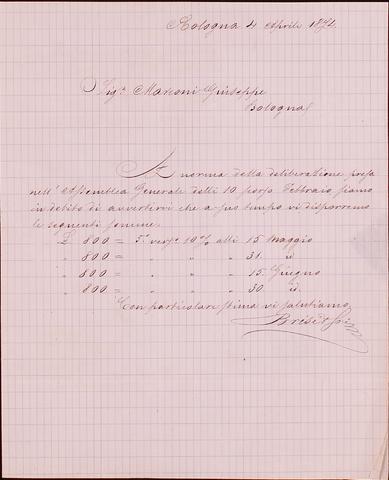 Bologna 4 Aprile 1874
Sigr. Marconi Giuseppe
Bologna
A norma della deliberatione presa
nell' Assemblea Generale delli 10 Febbraio, siamo
in debito di avvertirvi che a suo tempo vi disporremo
le seguenti somme.
£ 800 = 10% alli 15 Maggio
" 800 = " " " 31. id
" 800 = " " " 15. Giugno
" 800 = " " " 30. id.
Con particolare stima vi salutiamo